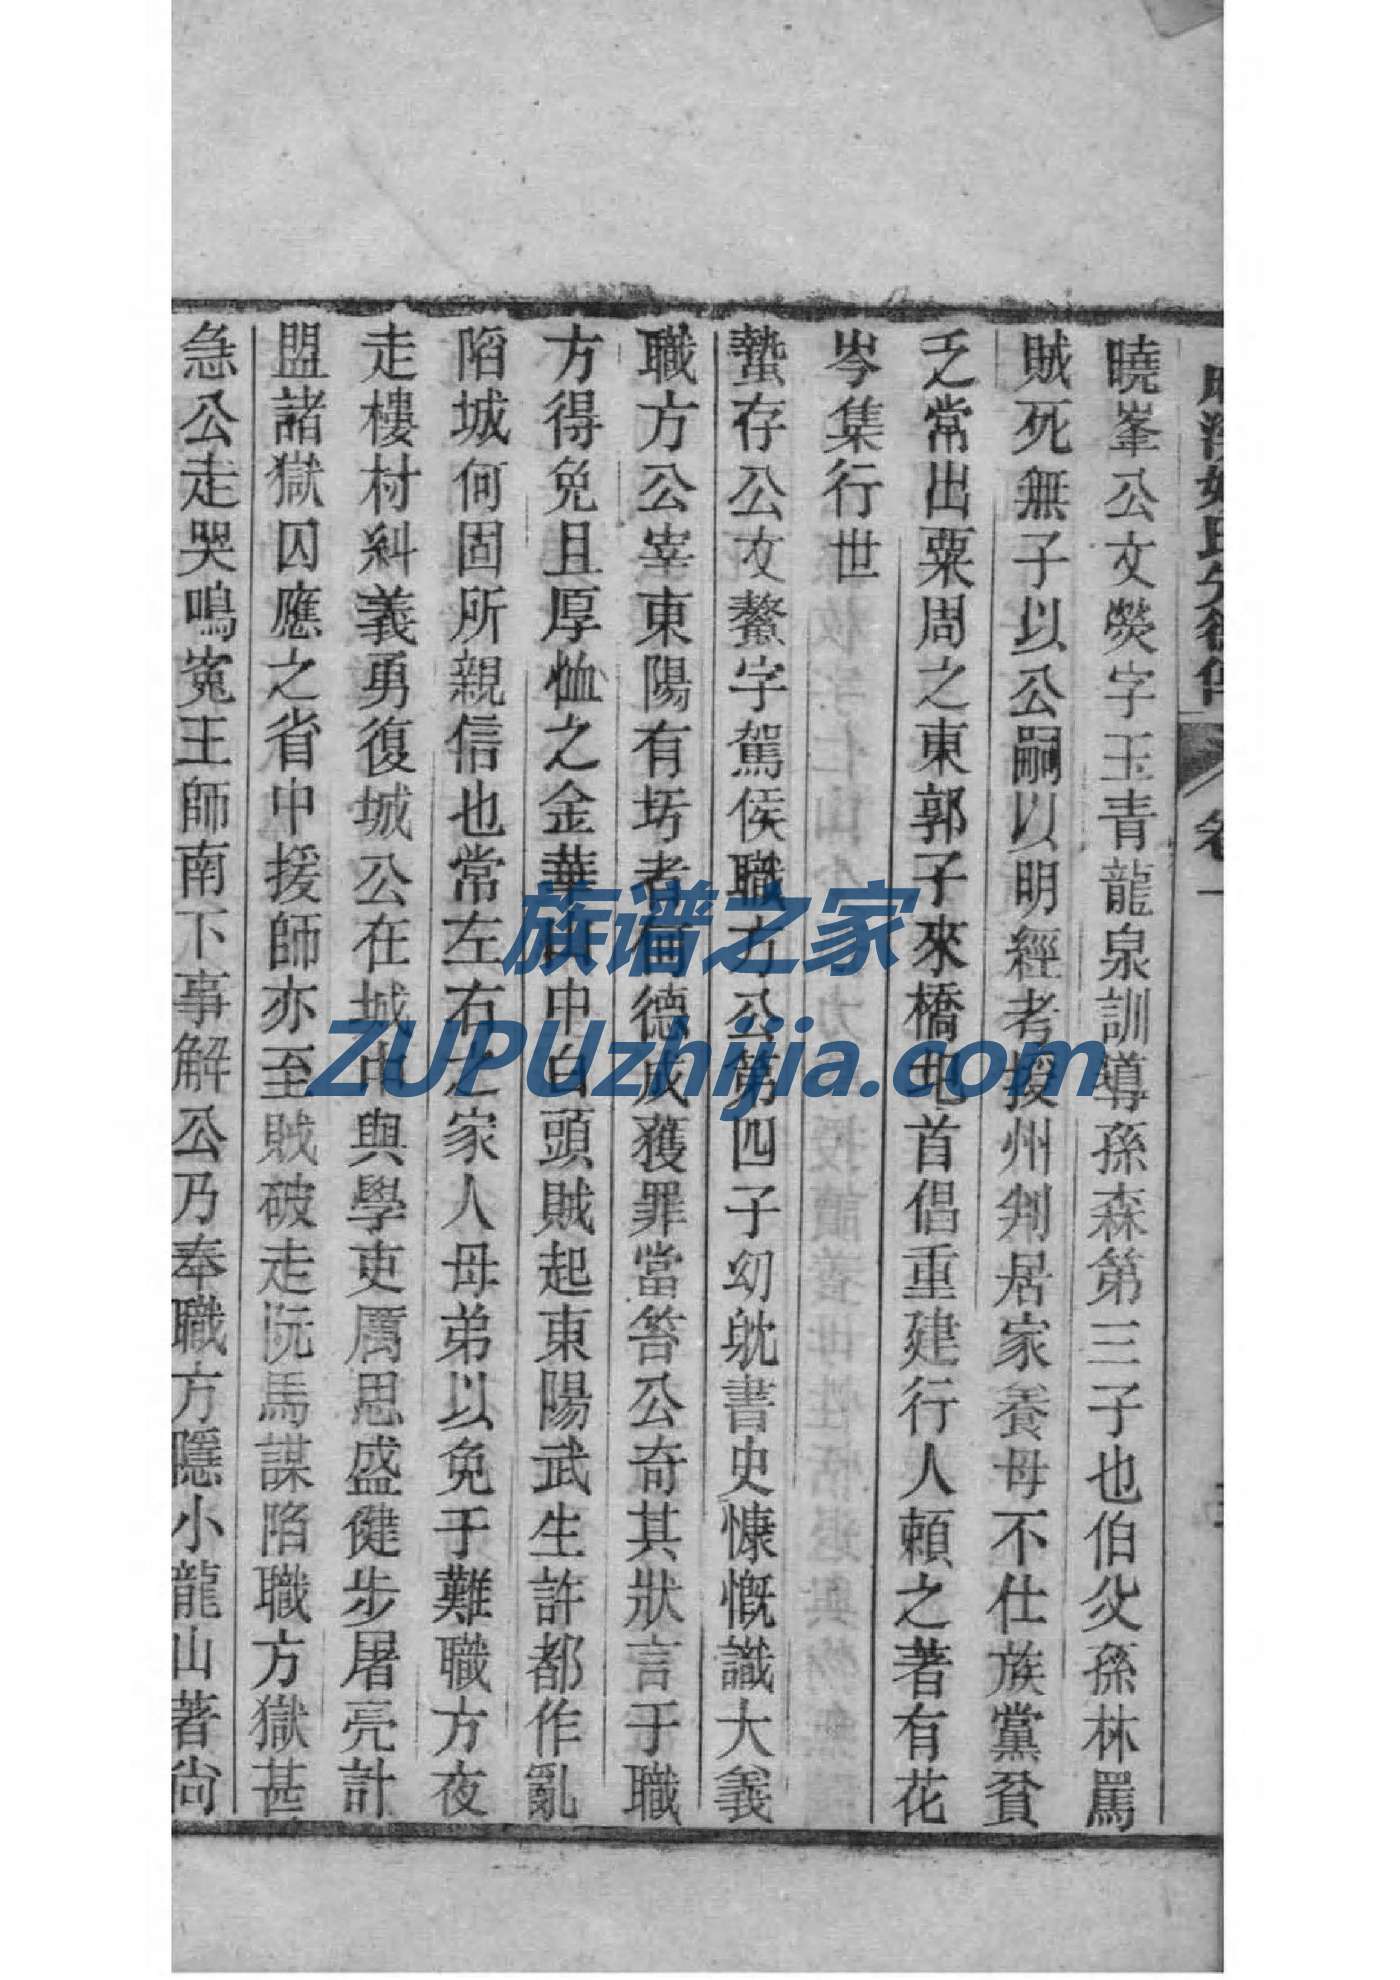 曉峯公文熒字玉青龍泉訓導孫森第三子也伯父孫林罵
賊死無子以公嗣以明經者授州判居家養母不仕族黨貧
乏常出粟周之東郭子來橋圯首倡重建行人頼之著有花
岑集行世
蟄存公文鰲字駕侯職方公第四子幼躭書史慷慨識大義
職方公宰東陽有圬者何德成獲罪當笞公奇其狀言于職
方得免且厚恤之金華山中白頭賊起東陽武生許都作亂
陷城何固所親信也常左右之家人母弟以免于難職方夜
走樓村糾義勇復城公在城中與學吏厲思盛健步屠亮計
盟諸獄囚應之省中援師亦至賊破走阮馬謀陷職方獄甚
急公走哭鳴寃王師南下事解公乃奉職方隱小龍山著尙
卷一
族谱之家
ZUPUzhijia.com